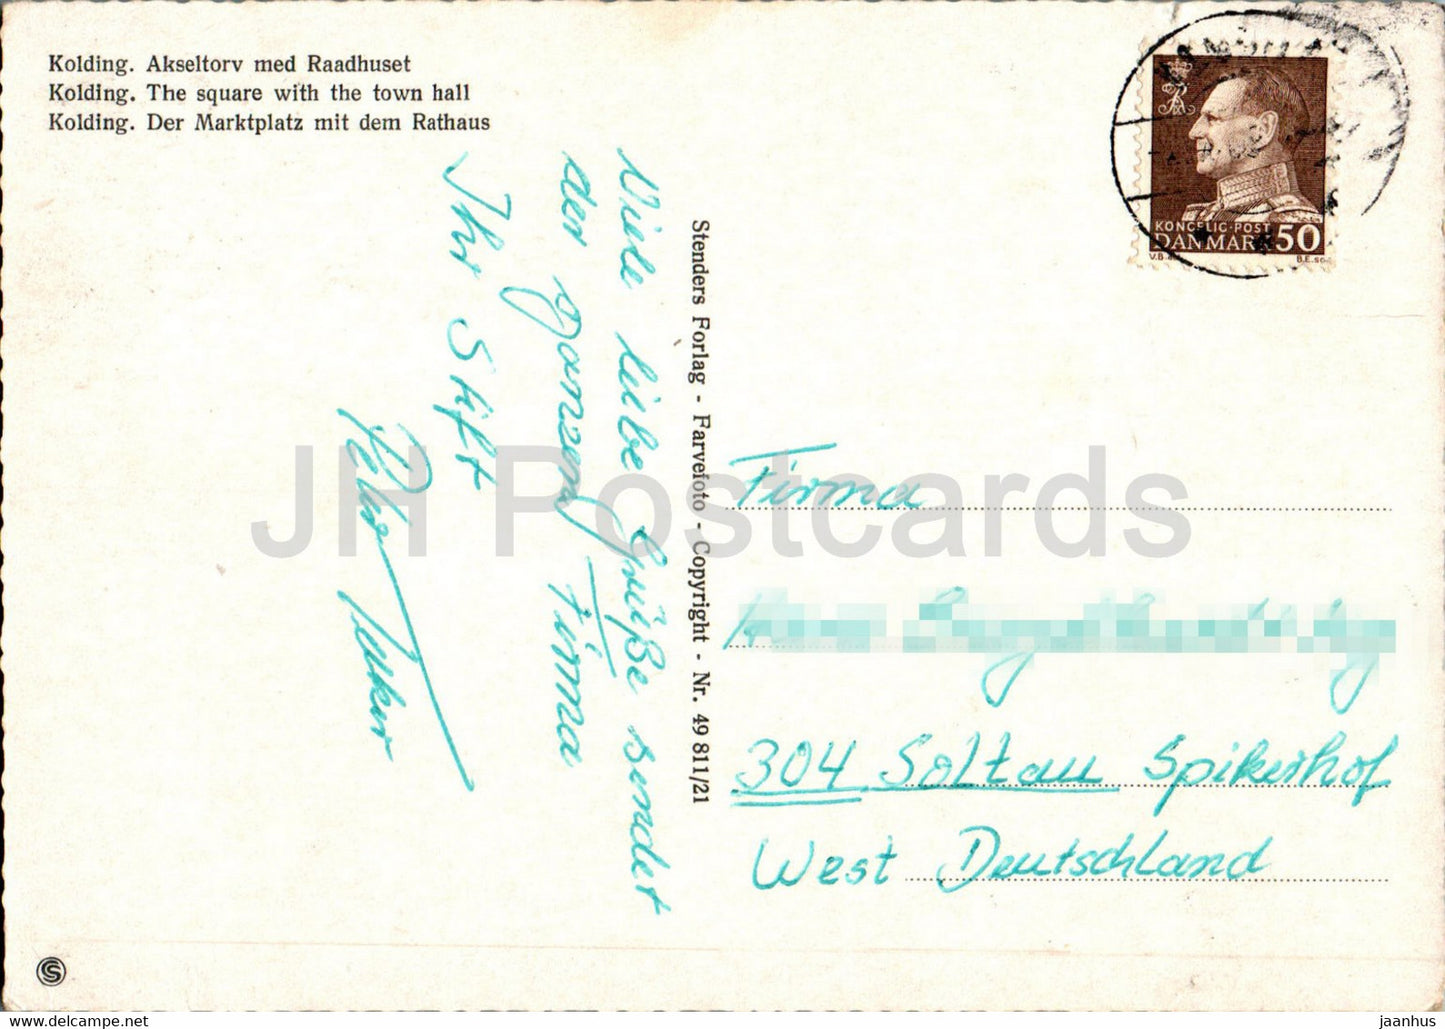 Kolding. Akseltorv med Raadhuset
Kolding. The square with the town hall
Kolding. Der Marktplatz mit dem Rathaus
KONGELIG·POST
DANMARK 50
Viele liebe Grüße sendet
der ganzen Firma
Ihr
Peter
Stenders Forlag - Farvefoto - Copyright - Nr. 49 811/21
Firma
304 Soltau Spikerhof
West Deutschland
JH Postcards
www.delcampe.net
jaanhus